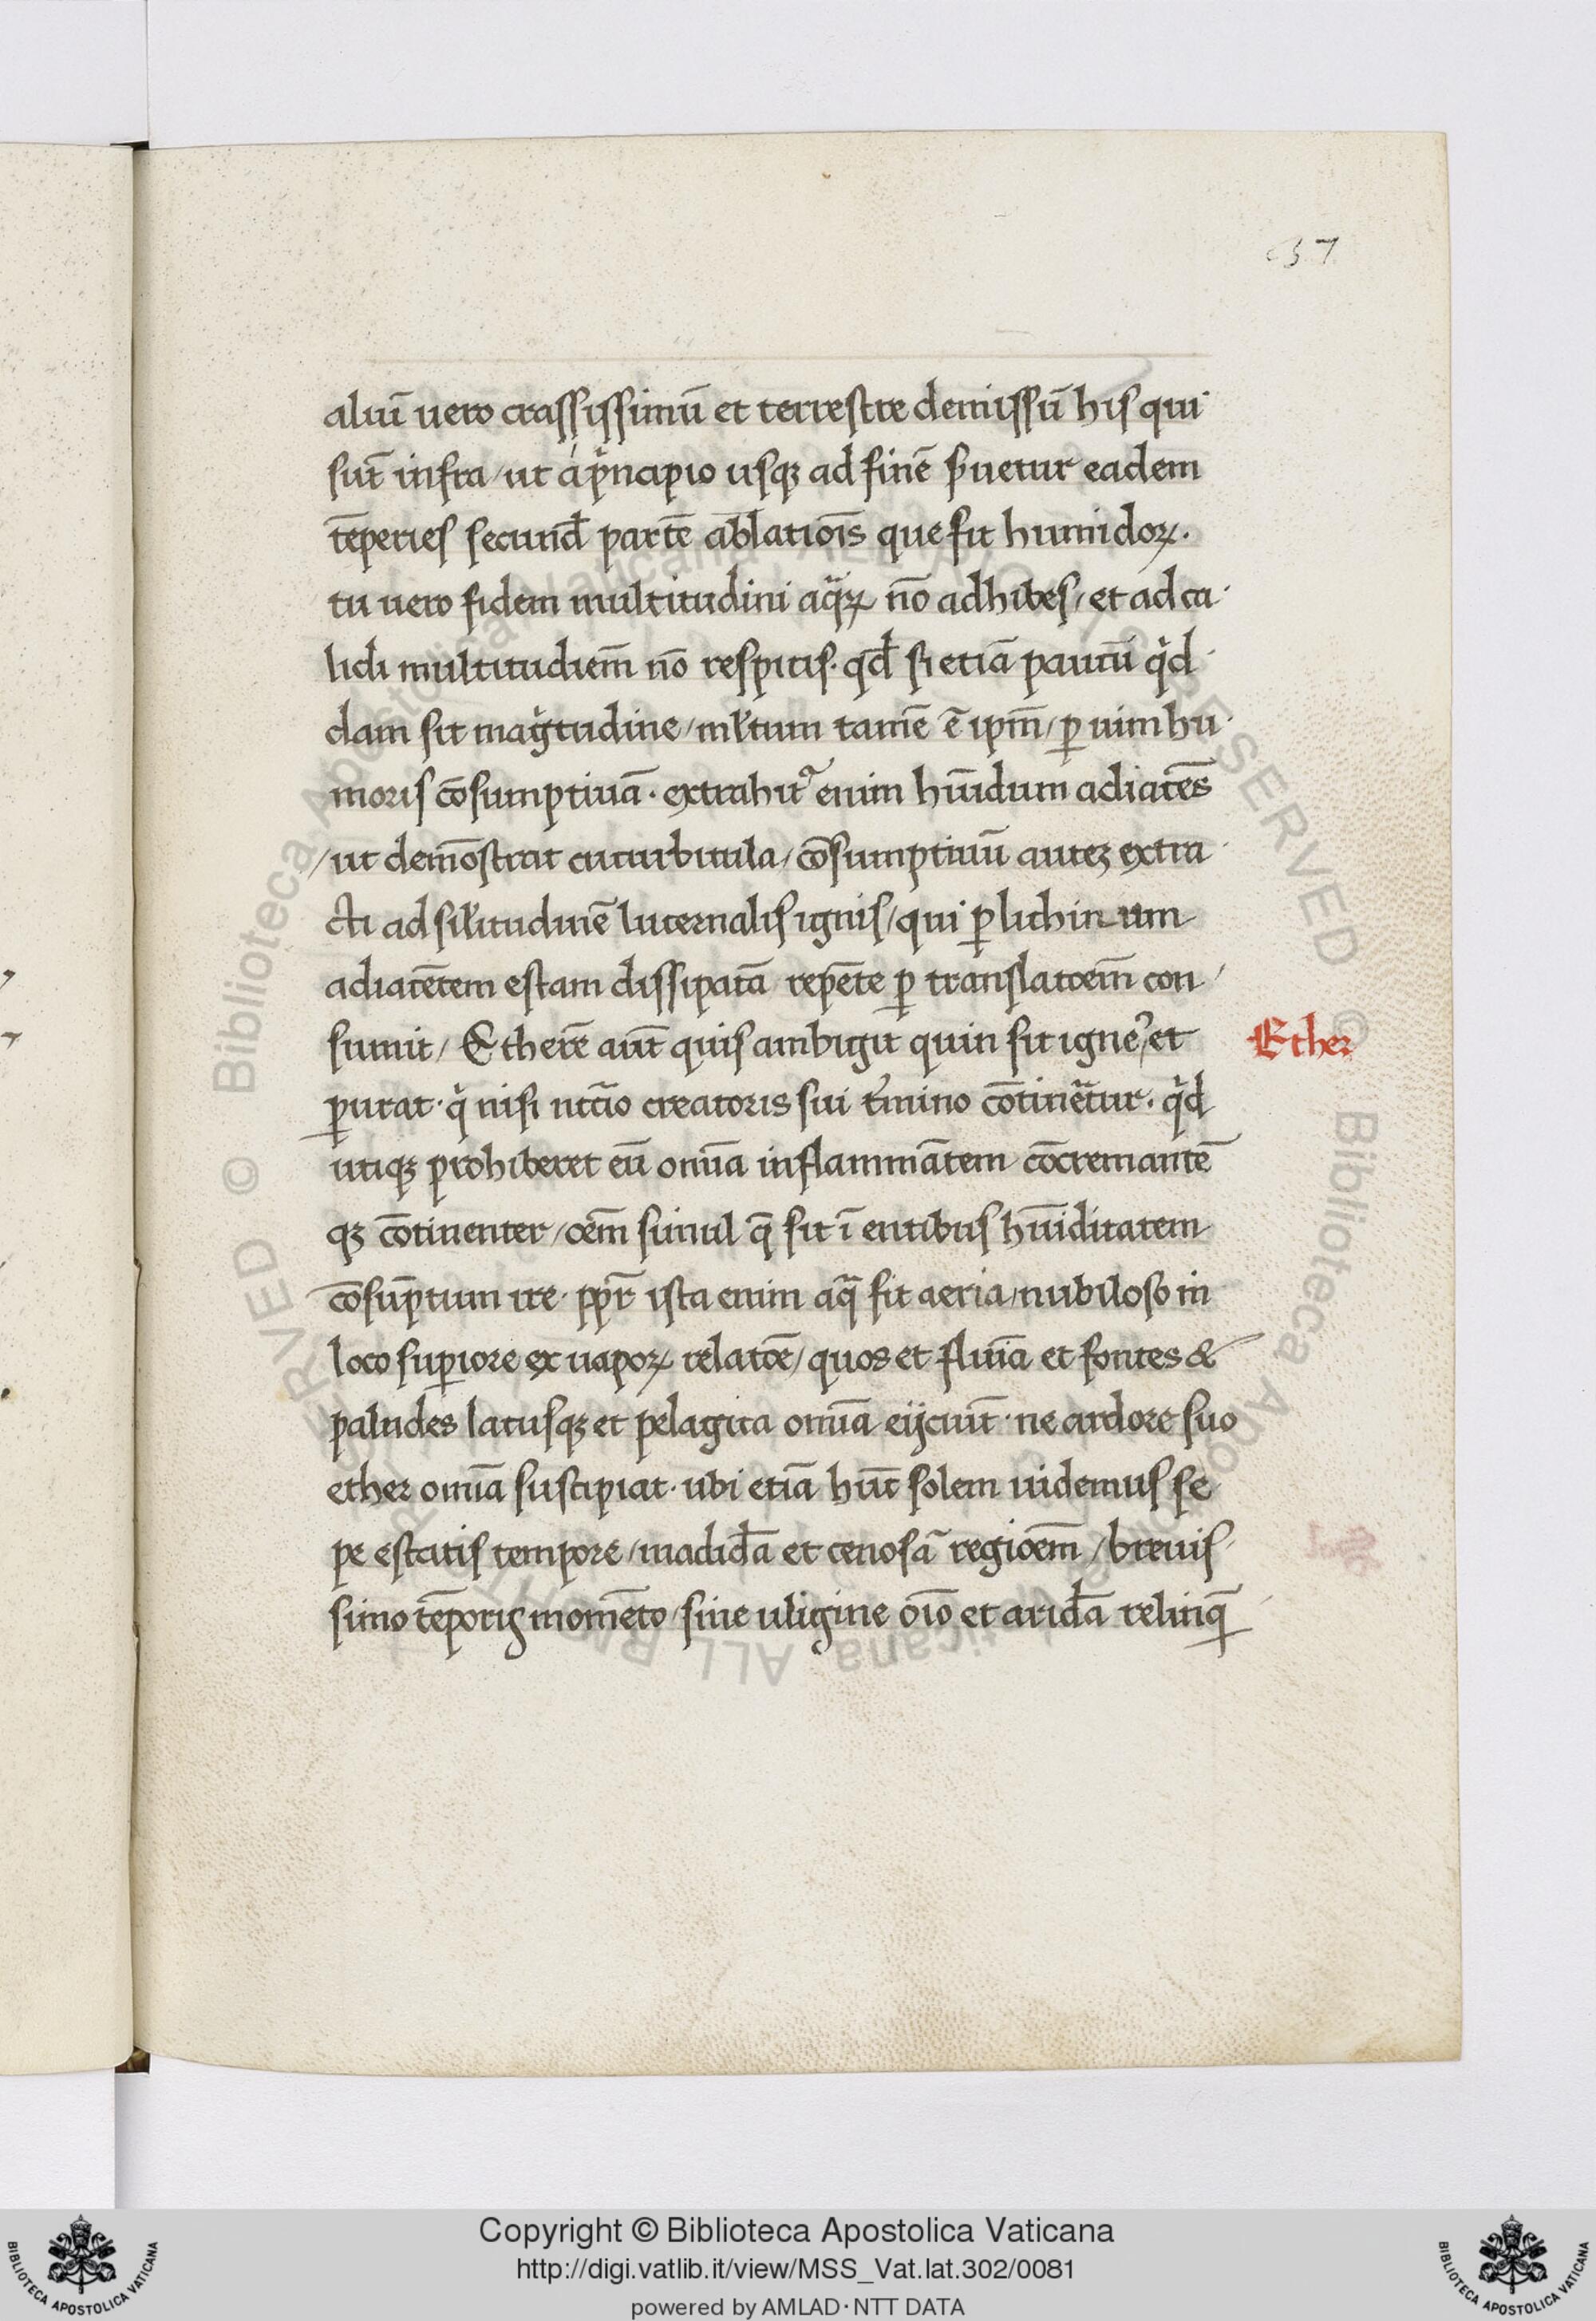 37
aliū uero crassissimū et terrestre demissū his qui
sūt infra / ut a pͥncipio usqꝫ ad finē ẜuetur eadem
tēperies secund̄ partē ablatiōis que fit humidoꝝ.
tu uero fidem multitudini aqᷓꝝ nō adhibes / et ad ca
lidi multitudiem̄ nō respicis. qd̄ si etiā paucū qͥd
dam sit magͥtudine / ml̓tum tamē ē ipm̄ / ꝑ uim hu
moris cōsumptiuā. extrahitᷣ enim hūidum adiacēs
/ ut demōstrat cucurbitula / cōsumptiuū auteꝫ extra
cti ad sil̓itudinē lucernalis ignis / qui ꝑ lichinum
adiacētem estam dissipatā repēte ꝑ translatoem̄ con
sumit / Etherē aūt quis ambigit quin sit igneꝰ / et
ꝑurat. qͥ nisi nutio creatoris sui tͥmino cōtinētur. qͥd
utiqꝫ prohiberet eū omīa inflammātem cōcremantē
qꝫ cōtinenter / oem̄ simul q̄ sit ī entibus hūiditatem
cōsūptum ire. ꝓpr̄ ista enim aqᷓ fit aeria / nubiloso in
loco suꝑiore ex uapoꝝ relatōe / quos et fluuīa et fontes &
paludes lacusqꝫ et pelagica omīa eijciūt. ne ardore suo
ether omīa suscipiat. ubi etiā hūt solem uidemus se
pe estatis tempore / madid̄a et cenosā regioem̄ / breuis
simo tēporis momēto / sine uligine oīo et arid̄a relinq̄
Ether
Copyright © Biblioteca Apostolica Vaticana
http://digi.vatlib.it/view/MSS_Vat.lat.302/0081
powered by AMLAD · NTT DATA
BIBLIOTECA APOSTOLICA VATICANA
BIBLIOTECA APOSTOLICA VATICANA